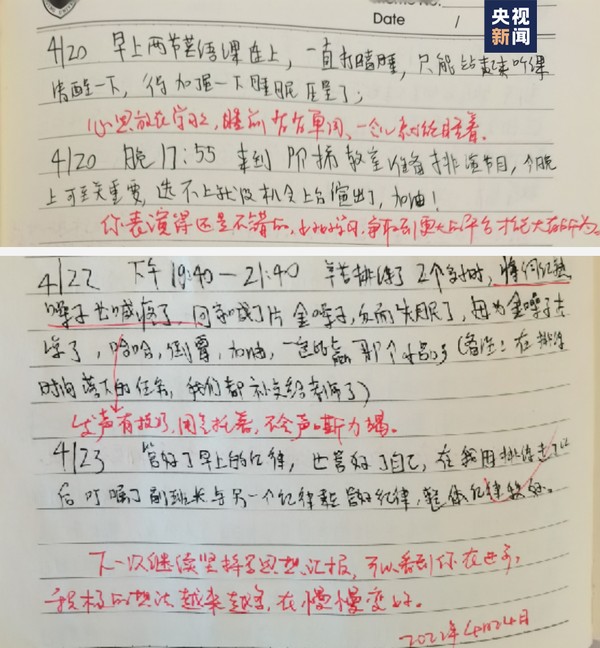 Date /
央视
新闻
4/20 早上两节英语课在上，一直打瞌睡，只能站起来听课
清醒一下，得加强一下睡眠质量了；
心思放在学习上，睡前
4/20 晚17:55 来到阶梯教室准备排演节目，今晚
上可至关重要，选不上就没机会上台演出了，加油！
你表演得还是不错的，争取到更大的平台才能大有所为。
4/22 下午19:40—21:40 辛苦排练了2个小时，
嗓子也喊疯了，回家喊了片金嗓子，反而失眠了，因为金嗓子太
凉了，哈哈，倒霉，加油，一定能赢（备注：在排练
时间落下的任务，我们都补交给老师了）
发声有技巧，用气托着，不会声嘶力竭。
4/23 管好了早上的纪律，也管好了自己，在我因排练走了以
后叮嘱了副班长与另一个纪律委员管好纪律，
下一次继续坚持写思想汇报，可以看到你在进步，
积极的想法越来越多，在慢慢变好。
2022年4月24日